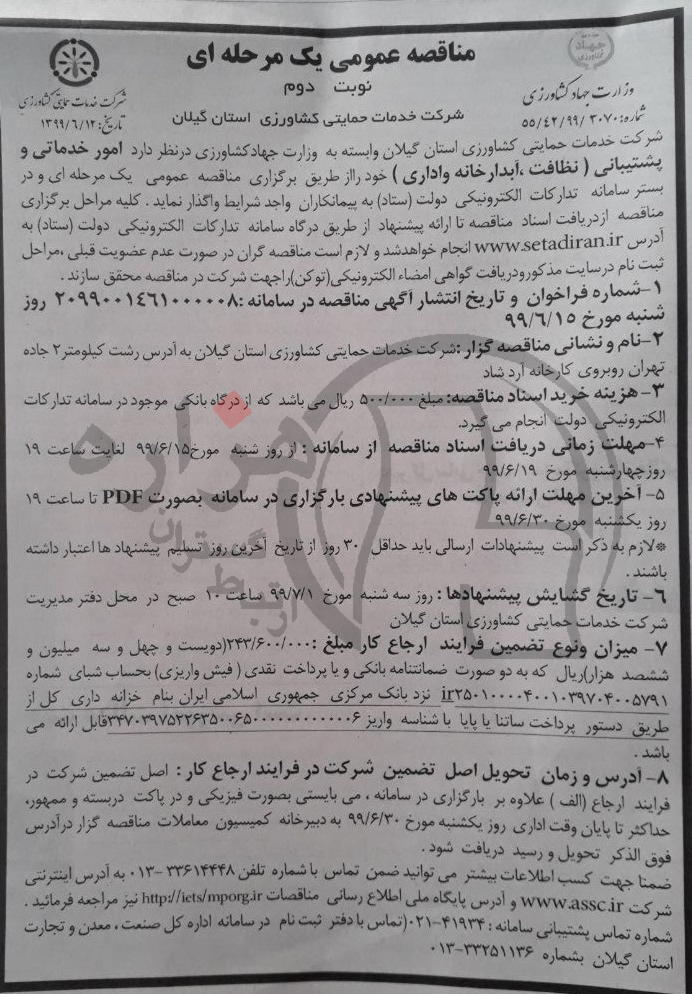 جهاد
مناقصه عمومی یک مرحله ای
نوبت دوم
وزارت جهاد کشاورزی
شرکت خدمات حمایتی کشاورزی
شرکت خدمات حمایتی کشاورزی استان گیلان
شماره: ۵۵/۴۲/۹۹/۳۰۷۰
تاریخ: ۱۳۹۹/۶/۱۲
شرکت خدمات حمایتی کشاورزی استان گیلان وابسته به وزارت جهادکشاورزی درنظر دارد امور خدماتی و
پشتیبانی ( نظافت ،آبدارخانه واداری ) خود رااز طریق برگزاری مناقصه عمومی یک مرحله ای و در
بستر سامانه تدارکات الکترونیکی دولت (ستاد) به پیمانکاران واجد شرایط واگذار نماید . کلیه مراحل برگزاری
مناقصه ازدریافت اسناد مناقصه تا ارائه پیشنهاد از طریق درگاه سامانه تدارکات الکترونیکی دولت (ستاد) به
آدرس www.setadiran.ir انجام خواهدشد و لازم است مناقصه گران در صورت عدم عضویت قبلی ،مراحل
ثبت نام درسایت مذکورودریافت گواهی امضاء الکترونیکی(توکن)راجهت شرکت در مناقصه محقق سازند .
۱-شماره فراخوان و تاریخ انتشار آگهی مناقصه در سامانه :۲۰۹۹۰۰۱۴۶۱۰۰۰۰۰۸ روز
شنبه مورخ ۹۹/۶/۱۵
۲-نام و نشانی مناقصه گزار :شرکت خدمات حمایتی کشاورزی استان گیلان به آدرس رشت کیلومتر۲ جاده
تهران روبروی کارخانه آرد شاد
۳-هزینه خرید اسناد مناقصه: مبلغ ۵۰۰/۰۰۰ ریال می باشد که از درگاه بانکی موجود در سامانه تدارکات
الکترونیکی دولت انجام می گیرد.
۴-مهلت زمانی دریافت اسناد مناقصه از سامانه : از روز شنبه مورخ۹۹/۶/۱۵ لغایت ساعت ۱۹
روزچهارشنبه مورخ ۹۹/۶/۱۹
۵- آخرین مهلت ارائه پاکت های پیشنهادی بارگزاری در سامانه بصورت PDF تا ساعت ۱۹
روز یکشنبه مورخ ۹۹/۶/۳۰
*لازم به ذکر است پیشنهادات ارسالی باید حداقل ۳۰ روز از تاریخ آخرین روز تسلیم پیشنهاد ها اعتبار داشته
باشند .
۶- تاریخ گشایش پیشنهادها : روز سه شنبه مورخ ۹۹/۷/۱ ساعت ۱۰ صبح در محل دفتر مدیریت
شرکت خدمات حمایتی کشاورزی استان گیلان
۷- میزان ونوع تضمین فرایند ارجاع کار مبلغ :۲۴۳/۶۰۰/۰۰۰(دویست و چهل و سه میلیون و
ششصد هزار)ریال که به دو صورت ضمانتنامه بانکی و یا پرداخت نقدی ( فیش واریزی) بحساب شبای شماره
ir۲۵۰۱۰۰۰۰۴۰۰۱۰۳۹۷۰۴۰۰۵۷۹۱ نزد بانک مرکزی جمهوری اسلامی ایران بنام خزانه داری کل از
طریق دستور پرداخت ساتنا یا پایا با شناسه واریز قابل ارائه می
باشد .
۸- آدرس و زمان تحویل اصل تضمین شرکت در فرایند ارجاع کار : اصل تضمین شرکت در
فرایند ارجاع (الف ) علاوه بر بارگزاری در سامانه ، می بایستی بصورت فیزیکی و در پاکت دربسته و ممهور،
حداکثر تا پایان وقت اداری روز یکشنبه مورخ ۹۹/۶/۳۰ به دبیرخانه کمیسیون معاملات مناقصه گزار درآدرس
فوق الذکر تحویل و رسید دریافت شود .
ضمنا جهت کسب اطلاعات بیشتر می توانید ضمن تماس با شماره تلفن ۳۳۶۱۴۴۴۸ -۰۱۳ به آدرس اینترنتی
شرکت www.assc.ir و آدرس پایگاه ملی اطلاع رسانی مناقصات http://iets/mporg.ir نیز مراجعه فرمائید .
شماره تماس پشتیبانی سامانه : ۴۱۹۳۴-۰۲۱(تماس با دفتر ثبت نام در سامانه اداره کل صنعت ، معدن و تجارت
استان گیلان بشماره ۳۳۲۵۱۱۳۶-۰۱۳
هزاره